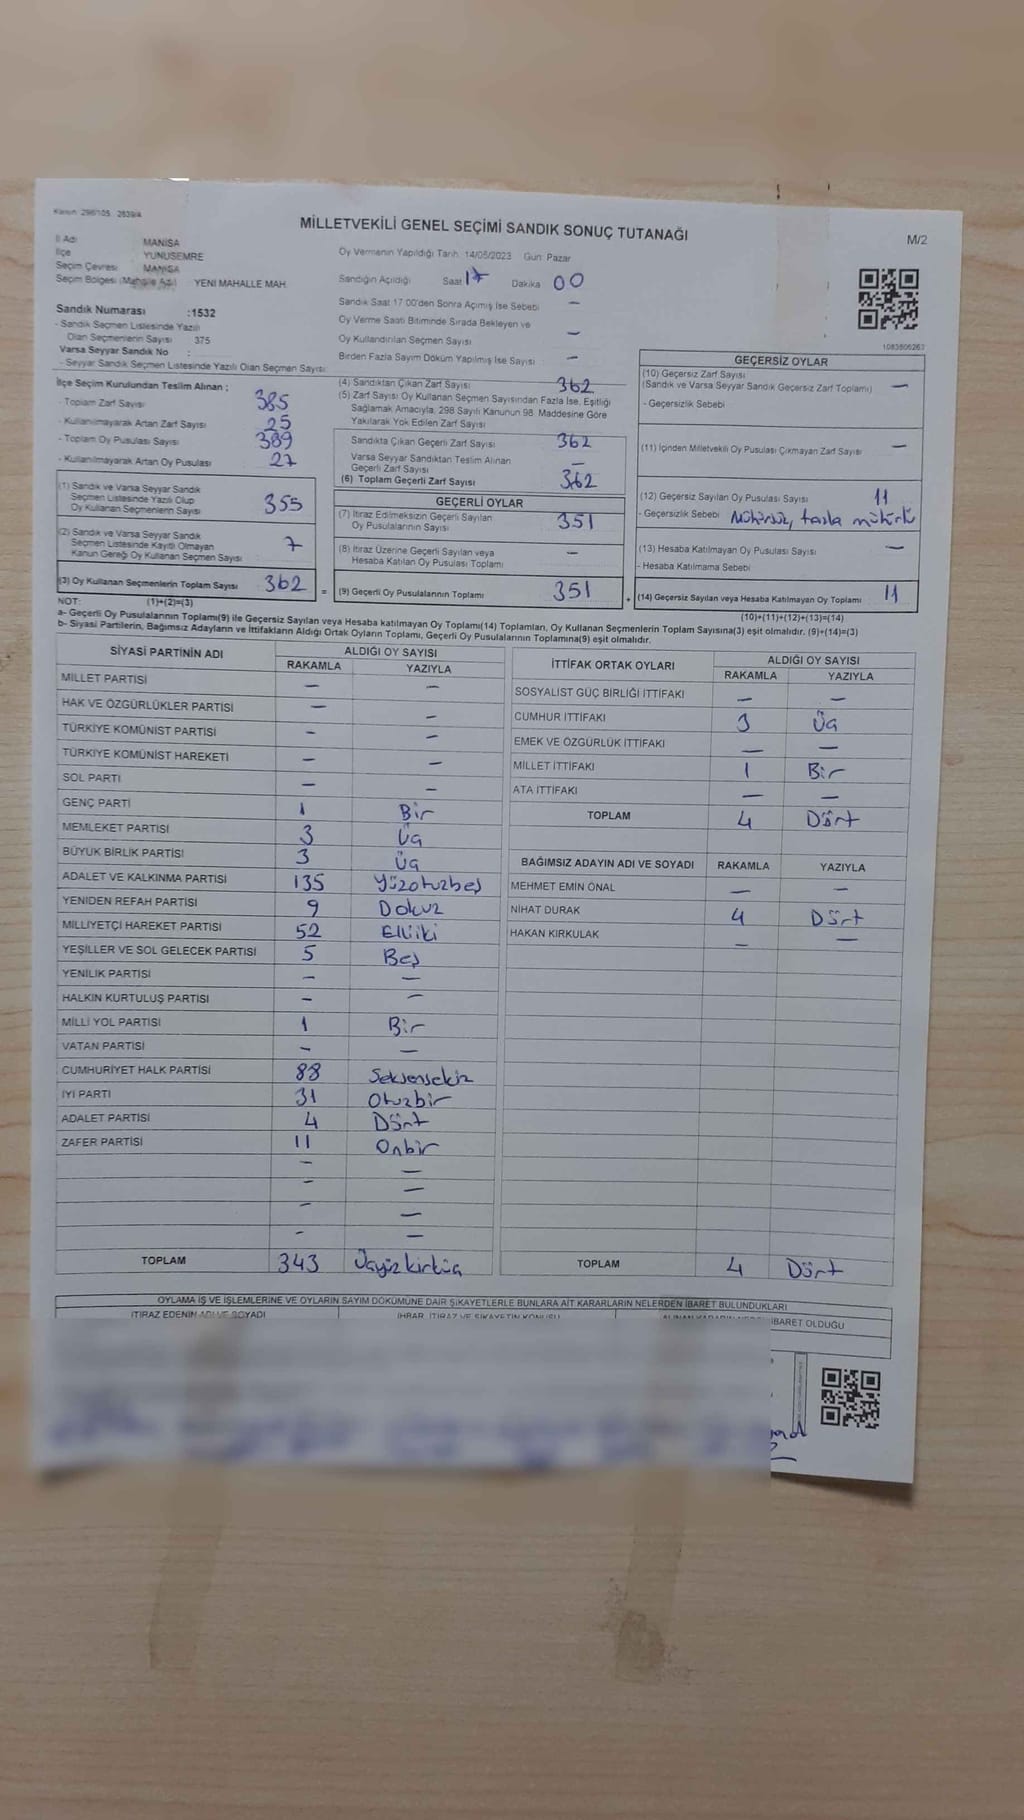 Kanun: 298/105, 2839/4
MİLLETVEKİLİ GENEL SEÇİMİ SANDIK SONUÇ TUTANAĞI
M/2
İl Adı MANİSA
İlçe YUNUSEMRE
Seçim Çevresi MANİSA
Seçim Bölgesi (Mahalle Adı) YENİ MAHALLE MAH.
Sandık Numarası :1532
- Sandık Seçmen Listesinde Yazılı
Olan Seçmenlerin Sayısı 375
Varsa Seyyar Sandık No :
- Seyyar Sandık Seçmen Listesinde Yazılı Olan Seçmen Sayısı:
Oy Vermenin Yapıldığı Tarih: 14/05/2023 Gün: Pazar
Sandığın Açıldığı Saat 17 Dakika 00
Sandık Saat 17:00'den Sonra Açılmış İse Sebebi —
Oy Verme Saati Bitiminde Sırada Bekleyen ve
Oy Kullandırılan Seçmen Sayısı —
Birden Fazla Sayım Döküm Yapılmış İse Sayısı : —
1083806263
İlçe Seçim Kurulundan Teslim Alınan ;
- Toplam Zarf Sayısı 385
- Kullanılmayarak Artan Zarf Sayısı 25
- Toplam Oy Pusulası Sayısı 389
- Kullanılmayarak Artan Oy Pusulası 27
(1) Sandık ve Varsa Seyyar Sandık
Seçmen Listesinde Yazılı Olup
Oy Kullanan Seçmenlerin Sayısı 355
(2) Sandık ve Varsa Seyyar Sandık
Seçmen Listesinde Kayıtlı Olmayan
Kanun Gereği Oy Kullanan Seçmen Sayısı 7
(3) Oy Kullanan Seçmenlerin Toplam Sayısı 362
(4) Sandıktan Çıkan Zarf Sayısı 362
(5) Zarf Sayısı Oy Kullanan Seçmen Sayısından Fazla İse, Eşitliği
Sağlamak Amacıyla, 298 Sayılı Kanunun 98. Maddesine Göre
Yakılarak Yok Edilen Zarf Sayısı
Sandıkta Çıkan Geçerli Zarf Sayısı 362
Varsa Seyyar Sandıktan Teslim Alınan
Geçerli Zarf Sayısı —
(6) Toplam Geçerli Zarf Sayısı 362
GEÇERLİ OYLAR
(7) İtiraz Edilmeksizin Geçerli Sayılan
Oy Pusulalarının Sayısı 351
(8) İtiraz Üzerine Geçerli Sayılan veya
Hesaba Katılan Oy Pusulası Toplamı —
= (9) Geçerli Oy Pusulalarının Toplamı 351
GEÇERSİZ OYLAR
(10) Geçersiz Zarf Sayısı
(Sandık ve Varsa Seyyar Sandık Geçersiz Zarf Toplamı) —
- Geçersizlik Sebebi
(11) İçinden Milletvekili Oy Pusulası Çıkmayan Zarf Sayısı —
(12) Geçersiz Sayılan Oy Pusulası Sayısı 11
- Geçersizlik Sebebi Mühürsüz, fazla mühürlü
(13) Hesaba Katılmayan Oy Pusulası Sayısı —
- Hesaba Katılmama Sebebi
+ (14) Geçersiz Sayılan veya Hesaba Katılmayan Oy Toplamı 11
NOT: (1)+(2)=(3)
(10)+(11)+(12)+(13)=(14)
a- Geçerli Oy Pusulalarının Toplamı(9) ile Geçersiz Sayılan veya Hesaba katılmayan Oy Toplamı(14) Toplamları, Oy Kullanan Seçmenlerin Toplam Sayısına(3) eşit olmalıdır. (9)+(14)=(3)
b- Siyasi Partilerin, Bağımsız Adayların ve İttifakların Aldığı Ortak Oyların Toplamı, Geçerli Oy Pusulalarının Toplamına(9) eşit olmalıdır.
SİYASİ PARTİNİN ADI ALDIĞI OY SAYISI
RAKAMLA YAZIYLA
MİLLET PARTİSİ — —
HAK VE ÖZGÜRLÜKLER PARTİSİ — —
TÜRKİYE KOMÜNİST PARTİSİ — —
TÜRKİYE KOMÜNİST HAREKETİ — —
SOL PARTİ — —
GENÇ PARTİ 1 Bir
MEMLEKET PARTİSİ 3 Üç
BÜYÜK BİRLİK PARTİSİ 3 Üç
ADALET VE KALKINMA PARTİSİ 135 Yüzotuzbeş
YENİDEN REFAH PARTİSİ 9 Dokuz
MİLLİYETÇİ HAREKET PARTİSİ 52 Elliiki
YEŞİLLER VE SOL GELECEK PARTİSİ 5 Beş
YENİLİK PARTİSİ — —
HALKIN KURTULUŞ PARTİSİ — —
MİLLİ YOL PARTİSİ 1 Bir
VATAN PARTİSİ — —
CUMHURİYET HALK PARTİSİ 88 Seksensekiz
İYİ PARTİ 31 Otuzbir
ADALET PARTİSİ 4 Dört
ZAFER PARTİSİ 11 Onbir
— —
— —
— —
— —
TOPLAM 343 Üçyüzkırküç
İTTİFAK ORTAK OYLARI ALDIĞI OY SAYISI
RAKAMLA YAZIYLA
SOSYALİST GÜÇ BİRLİĞİ İTTİFAKI — —
CUMHUR İTTİFAKI 3 Üç
EMEK VE ÖZGÜRLÜK İTTİFAKI — —
MİLLET İTTİFAKI 1 Bir
ATA İTTİFAKI — —
TOPLAM 4 Dört
BAĞIMSIZ ADAYIN ADI VE SOYADI RAKAMLA YAZIYLA
MEHMET EMİN ÖNAL — —
NİHAT DURAK 4 Dört
HAKAN KIRKULAK — —
TOPLAM 4 Dört
OYLAMA İŞ VE İŞLEMLERİNE VE OYLARIN SAYIM DÖKÜMÜNE DAİR ŞİKAYETLERLE BUNLARA AİT KARARLARIN NELERDEN İBARET BULUNDUKLARI
İTİRAZ EDENİN ADI VE SOYADI İHBAR, İTİRAZ VE ŞİKAYETİN KONUSU İBARET OLDUĞU